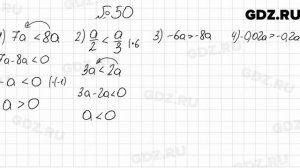 GDZ.RU
№50
1) 7a < 8a
7a-8a < 0
-a < 0 | ·(-1)
a > 0
2) a/2 < a/3 | ·6
3a < 2a
3a-2a < 0
a < 0
3) -6a > -8a
4) -0,02a > -0,2a
GDZ.RU